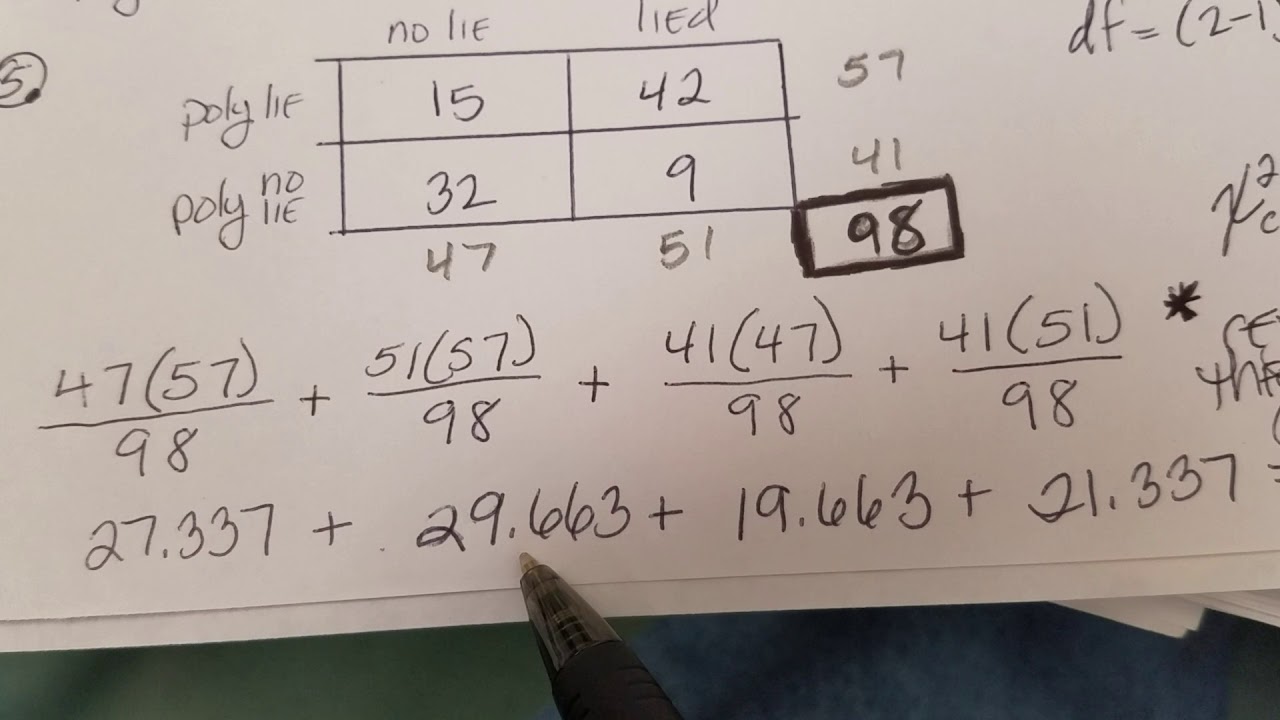 no lie lied
df = (2-1)
5.
poly lie 15 42 57
poly no lie 32 9 41
47 51 98
χ²c
47(57)/98 + 51(57)/98 + 41(47)/98 + 41(51)/98 *
27.337 + 29.663 + 19.663 + 21.337 =